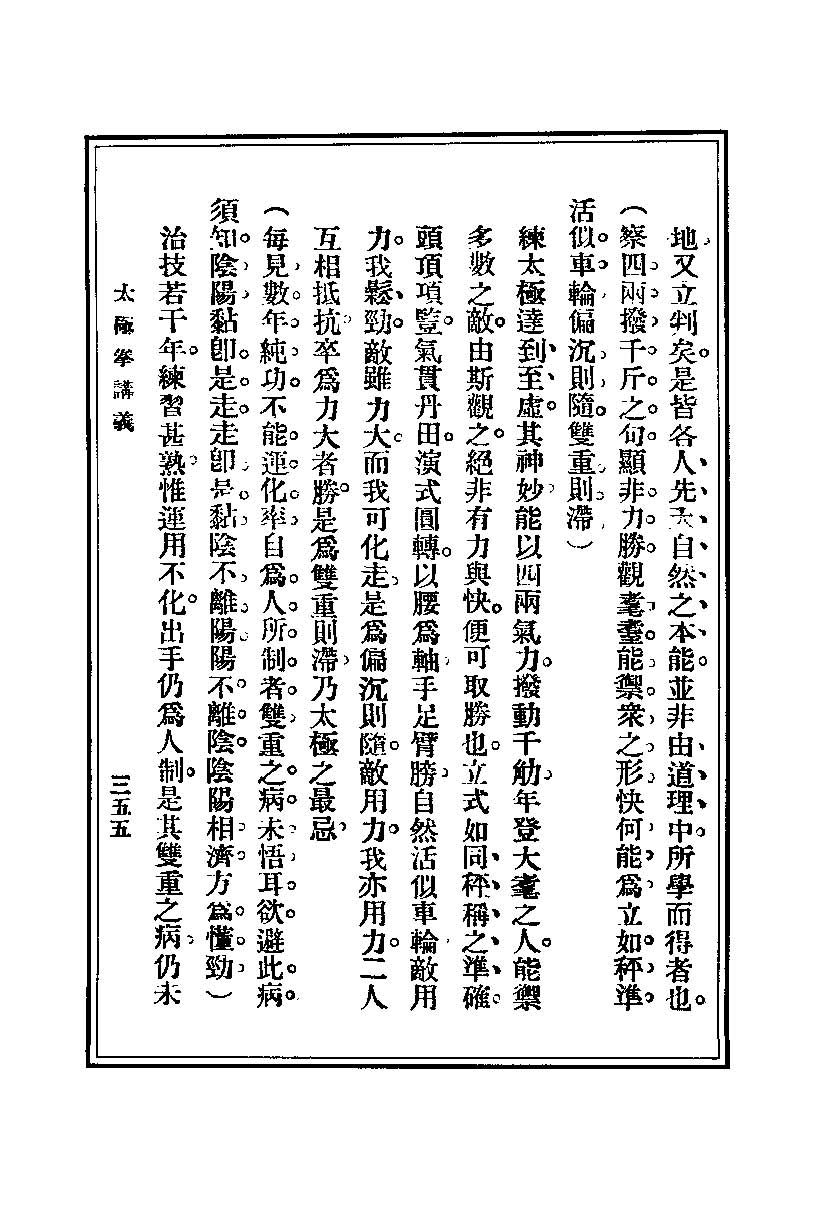 地、又立判矣。是皆各人、先、天、自、然、之、本、能。並非由、道、理、中。所學而得者也。
（察、四、兩、撥、千、斤、之、句。顯、非、力、勝。觀、耄、耋、能、禦、衆、之、形、快、何、能、爲、立、如、秤、準、
活、似、車、輪、偏、沉、則、隨。雙、重、則、滯）
練太極達到、至、虛。其神妙、能以四兩氣力。撥動千觔、年登大耄之人。能禦
多數之敵。由斯觀之。絕非有力與快。便可取勝也。立式如同、秤、稱、之、準、確。
頭頂項豎。氣貫丹田。演式圓轉。以腰爲軸、手足臂膊、自然活似車輪、敵用
力。我鬆、勁。敵雖力大。而我可化走、是爲偏沉則隨。敵用力。我亦用力。二人
互相抵抗、卒爲力大者勝。是爲雙重則滯、乃太極之最忌、
（每見、數年。純功。不能。運化。率、自爲。人。所。制。者。雙、重之。病。未、悟、耳。欲。避、此。病。
須知。陰、陽、黏。卽。是。走。走、卽、是、黏、陰、不、離、陽、陽、不。離。陰。陰、陽、相、濟。方爲。懂。勁、）
治技若干年。練習甚熟、惟運用不化。出手仍爲人制。是其雙重之病、仍未
太極拳講義
三五五